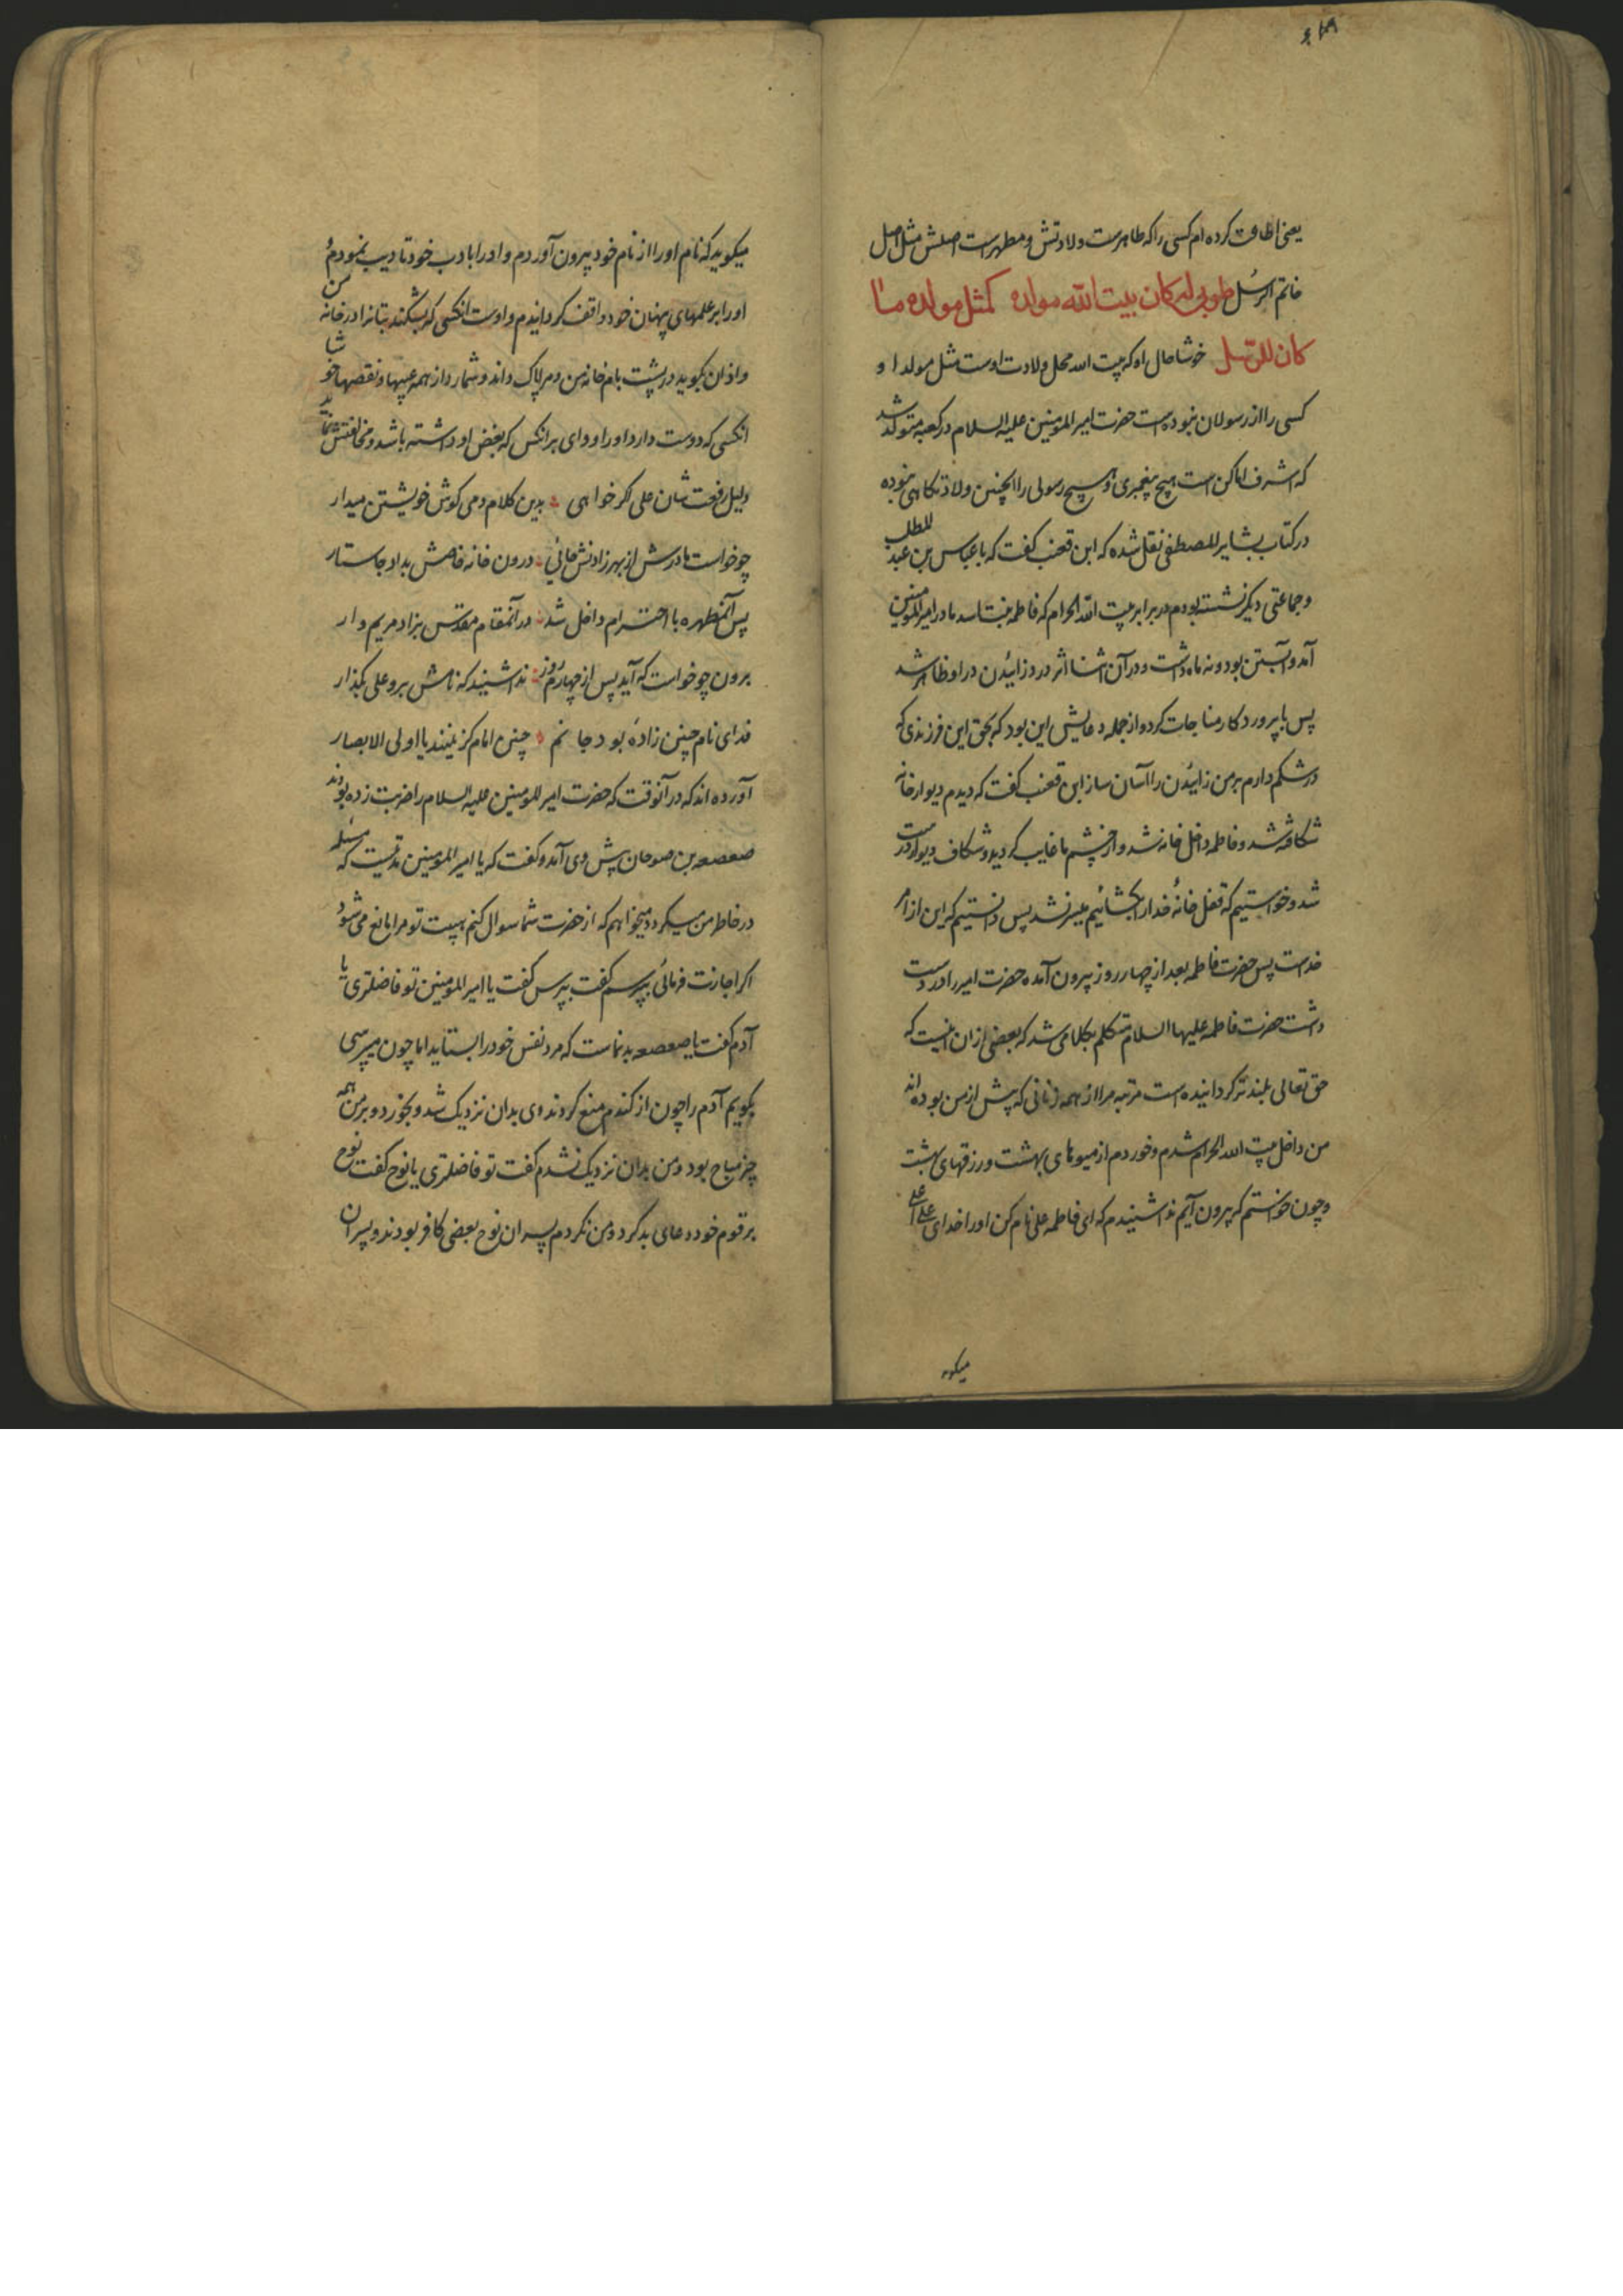 یعنی اطاعت کرده‌ام کسی را که طاهرست ولادتش و مطهرست اصلش مثل اصل
خاتم الرسل طوبی له کان بیت الله مولده کمثل مولده ما
کان للرسل خوشا حال او که بیت الله محل ولادت اوست مثل مولد او
کسی را از رسولان نبوده است حضرت امیرالمومنین علیه السلام در کعبه متولد شد
که اشرف اماکن است هیچ پیغمبری و هیچ رسولی را اینچنین ولادتکاهی نبوده
در کتاب بشایر المصطفی نقل شده که ابن قعنب کفت که با عباس بن عبد المطلب
و جماعتی دیکر نشسته بودم در برابر بیت الله الحرام که فاطمه بنت اسد مادر امیرالمومنین
آمد و آبستن بود و نه ماه داشت و در آن اثنا اثر درد زاییدن در او ظاهر شد
پس با پروردکار مناجات کرد و از جمله دعایش این بود که بحق این فرزندی که
در شکم دارم بر من زاییدن را آسان ساز ابن قعنب کفت که دیدم دیوار خانه
شکافته شد و فاطمه داخل خانه شد و از چشم ما غایب کردید و شکاف دیوار درست
شد و خواستیم که قفل خانهٔ خدا را بکشائیم میسر نشد پس دانستیم که این از امر
خداست پس حضرت فاطمه بعد از چهار روز بیرون آمده حضرت امیر را در دست
داشت حضرت فاطمه علیها السلام متکلم بکلامی شد که بعضی از آن اینست که
حق تعالی بلندتر کردانیده است مرتبه مرا از همه زنانی که پیش از من بوده‌اند
من داخل بیت الله الحرام شدم و خوردم از میوهای بهشت و رزقهای بهشت
و چون خواستم که بیرون آیم ندا شنیدم که ای فاطمه علی نام کن او را خدای علی اعلی
میکوید
میکوید که نام او را از نام خود بیرون آوردم و او را بادب خود تادیب نمودم و
او را بر علمهای پنهان خود واقف کردانیدم و اوست انکسی که بشکند بتانرا در خانه من
و اذان بکوید در پشت بام خانه من و مرا پاک داند و شمارد از همه عیبها و نقصها خوشا
انکسی که دوست دارد او را و وای بر انکس که بغض او داشته باشد و مخالفتش نماید
دلیل رفعت شان علی اکر خواهی بدین کلام دمی کوش خویشتن میدار
چو خواست مادرش از بهر زادنش جائی درون خانه خاصش بداد جا ستار
پس آن مطهره با احترام داخل شد در آن مقام مقدس بزاد مریم وار
برون چو خواست که آید پس از چهارم روز ندا شنید که نامش برو علی بکذار
فدای نام چنین زادهٔ بود جانم چنین امام کزینید یا اولی الابصار
آورده‌اند که در آنوقت که حضرت امیرالمومنین علیه السلام را ضربت زده بودند
صعصعه بن صوحان پیش وی آمد و کفت که یا امیرالمومنین مدتیست که مسئله
در خاطر من میکردد میخواهم که از حضرت شما سوال کنم هیبت تو مرا مانع می‌شود
اکر اجازت فرمائی بپرسم کفت بپرس کفت یا امیرالمومنین تو فاضلتری یا
آدم کفت یا صعصعه بدنماست که مرد نفس خود را بستاید اما چون میپرسی
بکویم آدم را چون از کندم منع کردند وی بدان نزدیک شد و بخورد و بر من همه
چیز مباح بود و من بدان نزدیک نشدم کفت تو فاضلتری یا نوح کفت نوح
بر قوم خود دعای بد کرد و من نکردم پسران نوح بعضی کافر بودند و پسران